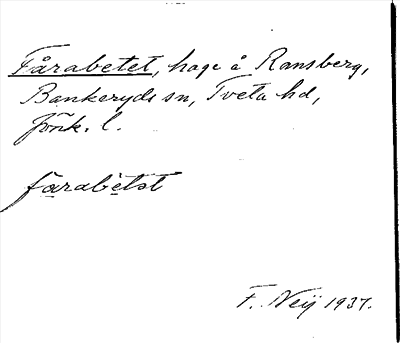 Fårabetet, hage å Ransberg,
Bankeryds sn, Tveta hd,
Jönk. l.
fårabetət
F. Neij 1937.